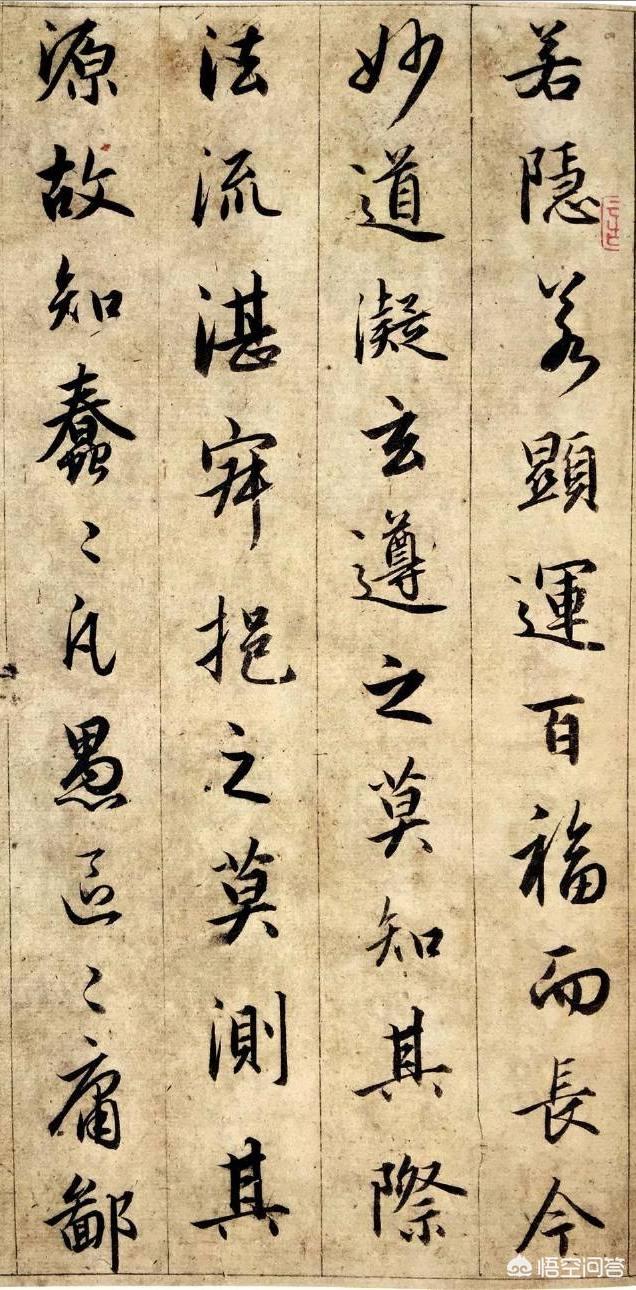 若隱若顯運百福而長今
妙道凝玄遵之莫知其際
法流湛寂挹之莫測其
源故知蠢〻凡愚區〻庸鄙
悟空问答